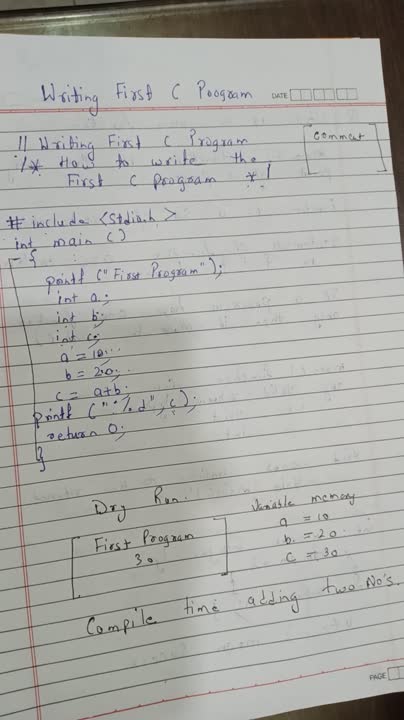 Writing First C Program
DATE
// Writing First C Program
/* How to write the
First C program */
comment
# include <Stdio.h>
int main ()
{
printf ("First Program");
int a;
int b;
int c;
a = 10;
b = 20;
c = a+b;
printf ("%d", c);
return 0;
}
Dry Run.
First Program
30
Variable memory
a = 10
b = 20
c = 30
Compile time adding two No's.
PAGE